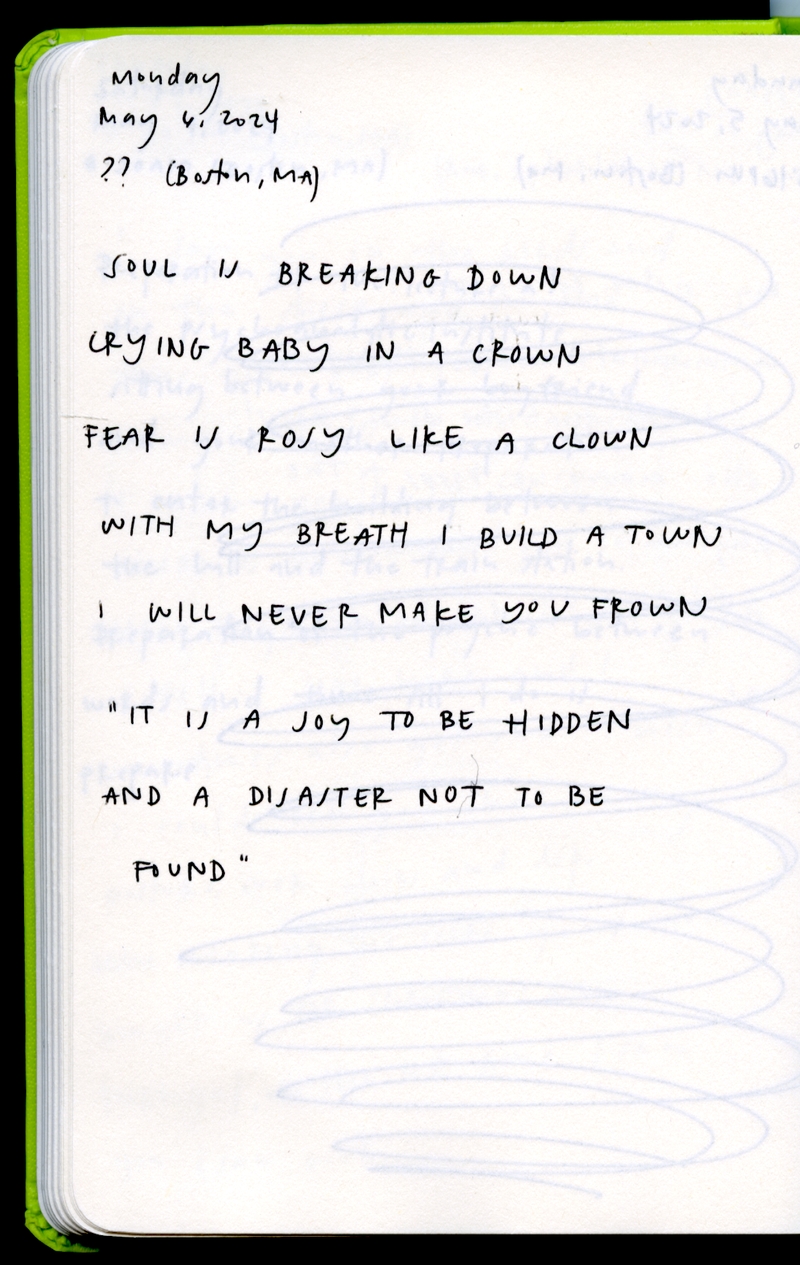 Monday
May 6, 2024
?? (Boston, MA)
SOUL IS BREAKING DOWN
CRYING BABY IN A CROWN
FEAR IS ROSY LIKE A CLOWN
WITH MY BREATH I BUILD A TOWN
I WILL NEVER MAKE YOU FROWN
"IT IS A JOY TO BE HIDDEN
AND A DISASTER NOT TO BE
FOUND"